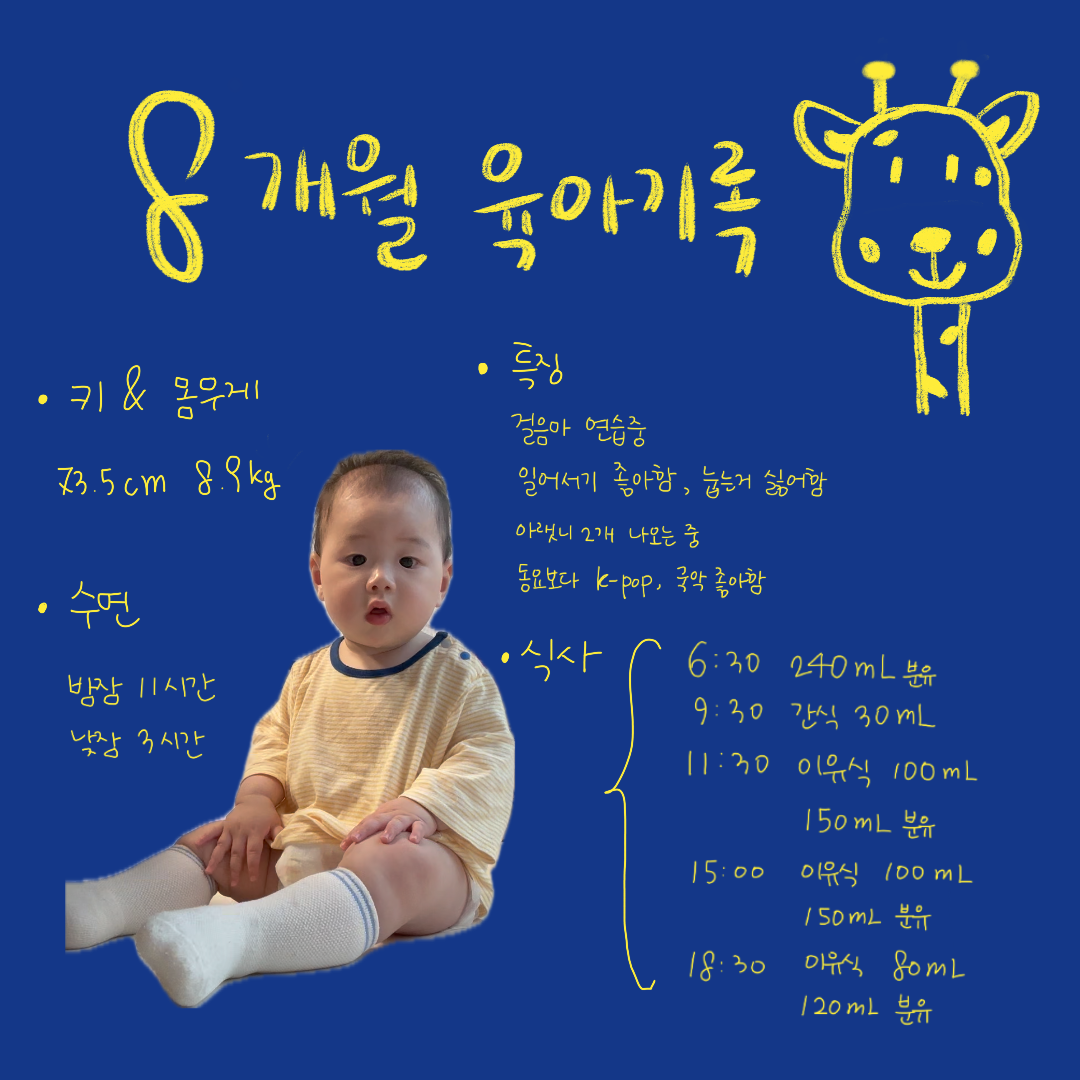 8개월 육아기록
• 키 & 몸무게
73.5cm 8.9kg
• 수면
밤잠 11시간
낮잠 3시간
• 특징
걸음마 연습중
일어서기 좋아함, 눕는거 싫어함
아랫니 2개 나오는 중
동요보다 k-pop, 국악 좋아함
• 식사
6:30 240mL 분유
9:30 간식 30mL
11:30 이유식 100mL
150mL 분유
15:00 이유식 100mL
150mL 분유
18:30 이유식 80mL
120mL 분유